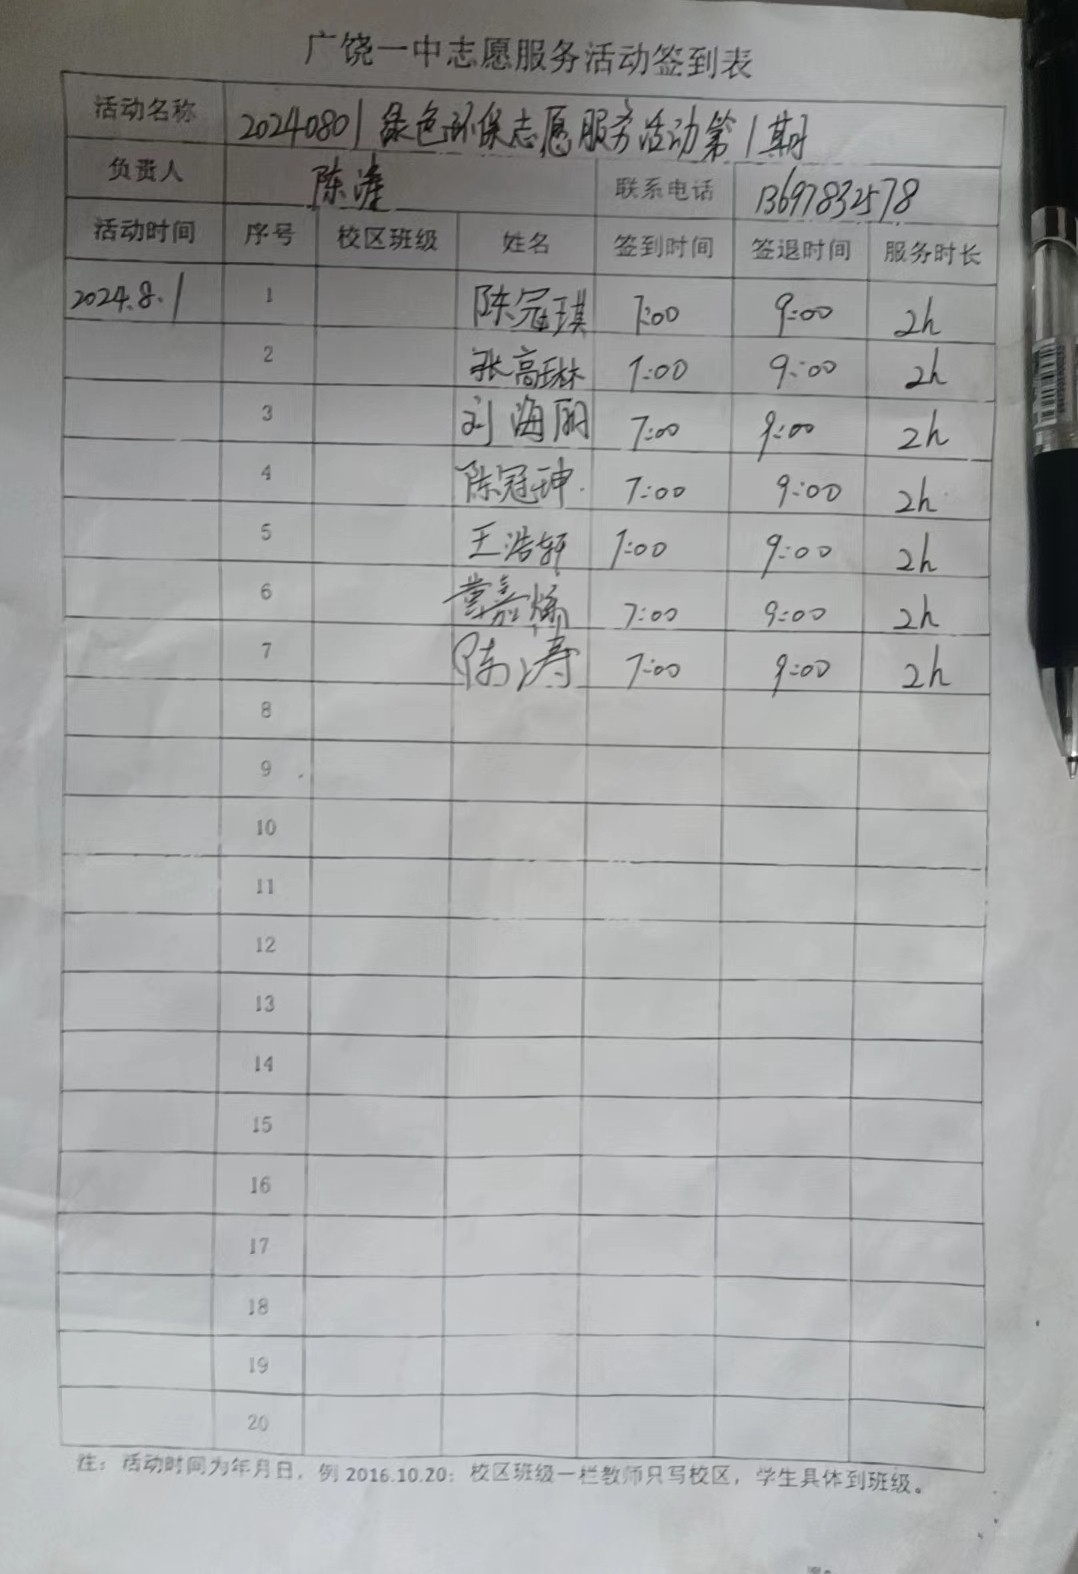 广饶一中志愿服务活动签到表
活动名称 20240801绿色环保志愿服务活动第1期
负责人 陈涛 联系电话 13697832578
活动时间 序号 校区班级 姓名 签到时间 签退时间 服务时长
2024.8.1 1 陈冠琪 7:00 9:00 2h
2 张高琳 7:00 9:00 2h
3 刘海丽 7:00 9:00 2h
4 陈冠珅 7:00 9:00 2h
5 王浩轩 7:00 9:00 2h
6 嘉 7:00 9:00 2h
7 陈涛 7:00 9:00 2h
8
9
10
11
12
13
14
15
16
17
18
19
20
注：活动时间为年月日，例 2016.10.20；校区班级一栏教师只写校区，学生具体到班级。